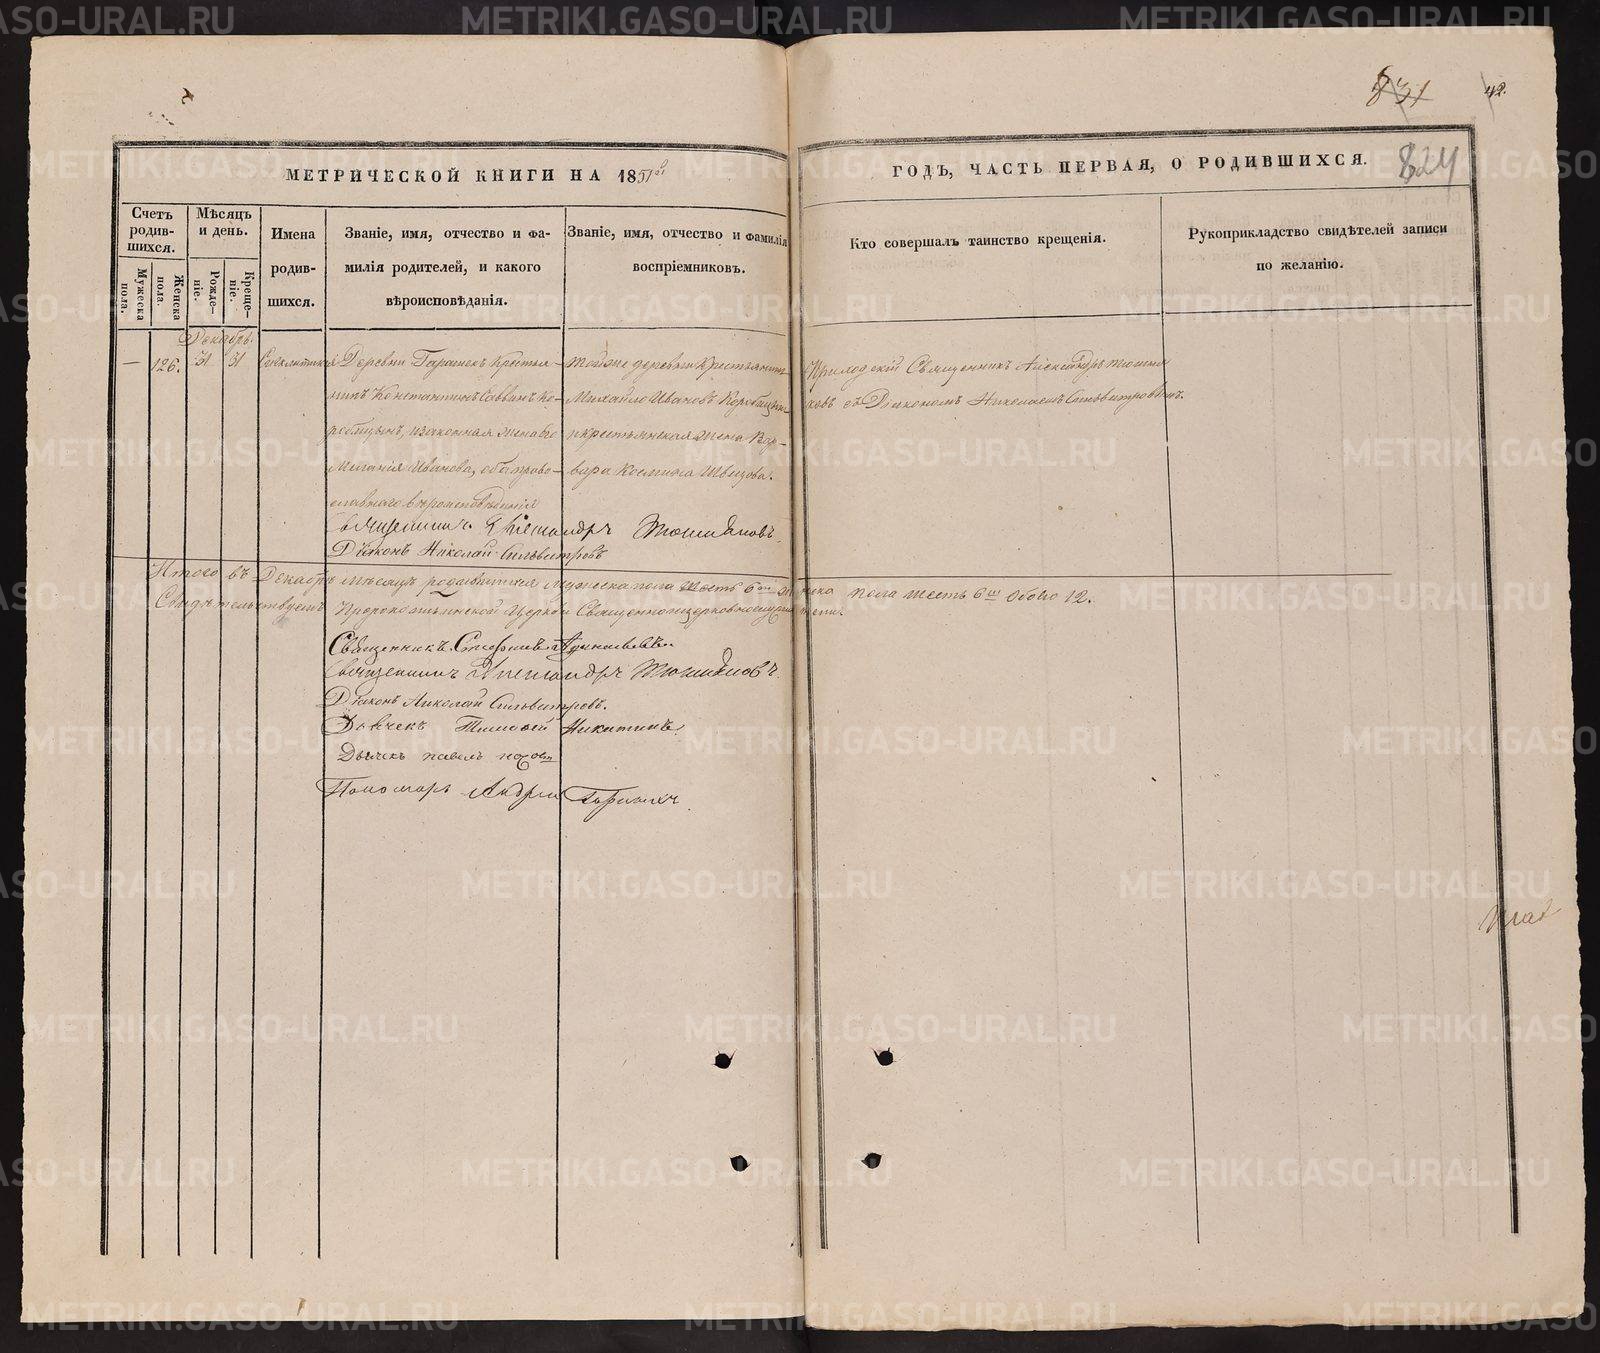 831
42.
824
МЕТРИЧЕСКОЙ КНИГИ НА 1851й
ГОДЪ, ЧАСТЬ ПЕРВАЯ, О РОДИВШИХСЯ.
Счетъ родив-шихся.
Мужеска пола.
Женска пола.
Мѣсяцъ и день.
Рожде-ніе.
Креще-ніе.
Имена
родив-
шихся.
Званіе, имя, отчество и фа-
милія родителей, и какого
вѣроисповѣданія.
Званіе, имя, отчество и фамилія
воспріемниковъ.
Кто совершалъ таинство крещенія.
Рукоприкладство свидѣтелей записи
по желанію.
Декабрь
— 126. 31 31
Деревни Крестья-
нинъ Константинъ Саввинъ Ко-
робицынъ, и законная жена его
Меланія Иванова, оба право-
славнаго вѣроисповѣданія
Тойже деревни Крестьянинъ
Михайло Ивановъ Коробицынъ
и крестьянская жена Вар-
вара Космина Швецова.
Приходскій Священникъ Александръ Тюшня
ковъ съ Діакономъ Николаемъ Сильвитровымъ.
Священникъ Александръ Тюшняковъ.
Діаконъ Николай Сильвитровъ
Итого въ Декабрѣ мѣсяцѣ родившихся мужеска пола шесть 6ть женска пола шесть 6ш Обоего 12.
Свидѣтельствуемъ Пророкоильинской Церкви Священноцерковнослужители.
Священникъ Стефанъ
Священникъ Александръ Тюшняковъ.
Діаконъ Николай Сильвитровъ.
Дьячекъ Тимофей Никитинъ.
Дьячекъ Павелъ
Пономарь Андрей
METRIKI.GASO-URAL.RU